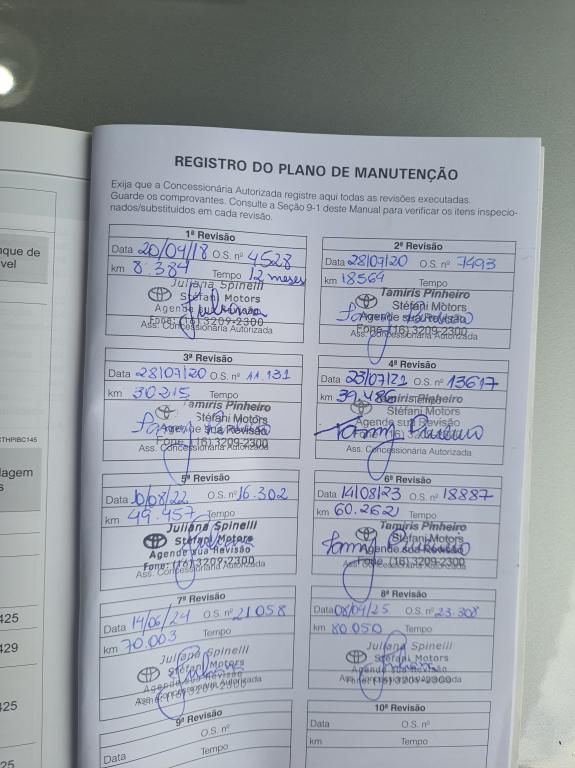 REGISTRO DO PLANO DE MANUTENÇÃO
Exija que a Concessionária Autorizada registre aqui todas as revisões executadas.
Guarde os comprovantes. Consulte a Seção 9-1 deste Manual para verificar os itens inspecio-
nados/substituídos em cada revisão.
1ª Revisão
Data 20/04/18 O.S. nº 4528
km 8.384 Tempo 12 meses
Juliana Spinelli
Stéfani Motors
Agende sua Revisão
Fone: (16) 3209-2300
Ass. Concessionária Autorizada
2ª Revisão
Data 28/07/20 O.S. nº 7493
km 18569 Tempo
Tamiris Pinheiro
Stéfani Motors
Agende sua Revisão
Fone (16) 3209-2300
Ass. Concessionária Autorizada
3ª Revisão
Data 28/07/20 O.S. nº 11.131
km 30215 Tempo
Tamiris Pinheiro
Stéfani Motors
Agende sua Revisão
Fone (16) 3209-2300
Ass. Concessionária Autorizada
4ª Revisão
Data 23/07/21 O.S. nº 13617
km 39.486 Tempo
Tamiris Pinheiro
Stéfani Motors
Agende sua Revisão
Ass. Concessionária Autorizada
5ª Revisão
Data 10/08/22 O.S. nº 16.302
km 49.457 Tempo
Juliana Spinelli
Stéfani Motors
Agende sua Revisão
Fone: (16) 3209-2300
Ass. Concessionária Autorizada
6ª Revisão
Data 14/08/23 O.S. nº 18887
km 60.262 Tempo
Tamiris Pinheiro
Stéfani Motors
Agende sua Revisão
Fone (16) 3209-2300
Ass. Concessionária Autorizada
7ª Revisão
Data 14/06/24 O.S. nº 21058
km 70.003 Tempo
Juliana Spinelli
Stéfani Motors
Agende sua Revisão
Fone: (16) 3209-2300
Ass. Concessionária Autorizada
8ª Revisão
Data 08/04/25 O.S. nº 23.308
km 80.050 Tempo
Juliana Spinelli
Stéfani Motors
Agende sua Revisão
Fone: (16) 3209-2300
Ass. Concessionária Autorizada
9ª Revisão
Data O.S. nº
Tempo
10ª Revisão
Data O.S. nº
km Tempo
nque de
vel
THP/BC145
lagem
s
425
429
425
25